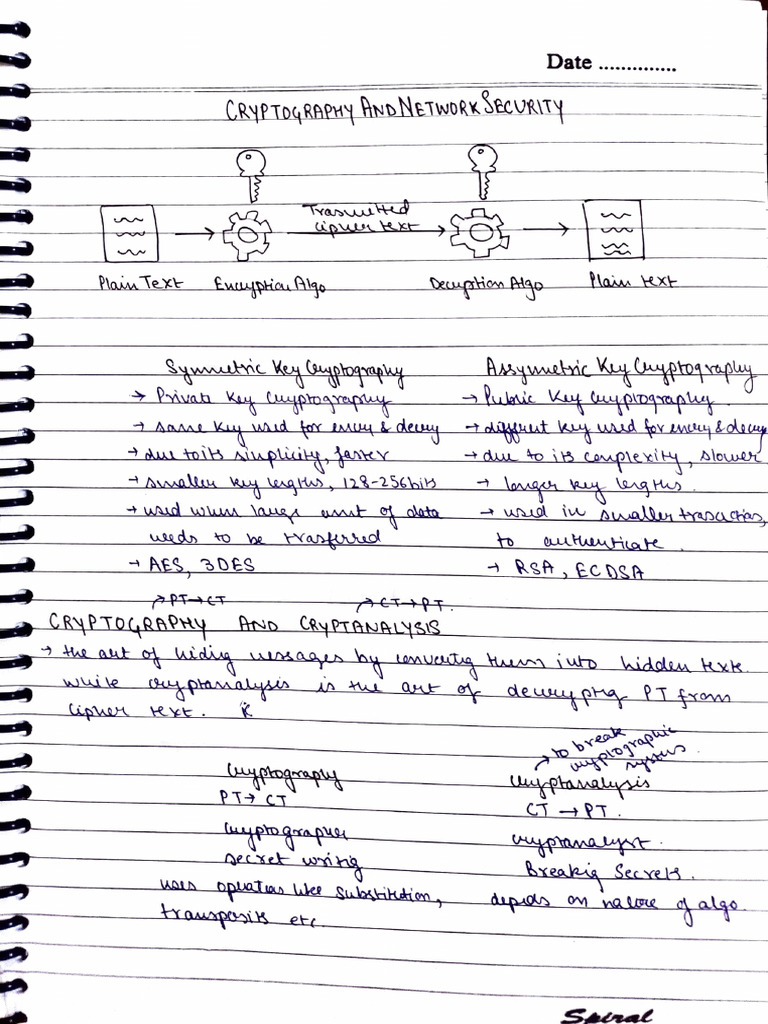 Date ..............
CRYPTOGRAPHY AND NETWORK SECURITY
Trasmitted
cipher text
Plain Text Encryption Algo Decryption Algo Plain text
Symmetric Key Cryptography
→ Private Key Cryptography
→ same key used for encry & decry
→ due to its simplicity, faster
→ smaller key lengths, 128-256 bits
→ used when large amt of data
needs to be trasferred
→ AES, 3DES
Assymetric Key Cryptography
→ Public Key Cryptography.
→ different key used for encry & decry
→ due to its complexity, slower
→ longer key lengths.
→ used in smaller trasactios,
to authenticate.
→ RSA, ECDSA
→ PT → CT → CT → PT.
CRYPTOGRAPHY AND CRYPTANALYSIS
→ the art of hiding messages by convertig them into hidden texts.
while cryptanalysis is the art of decryptig PT from
cipher text.
Cryptography
PT → CT
cryptographer
secret writig
uses opeatios like substitution,
transposits etc.
→ to break
cryptographic
systems.
Cryptanalysis
CT → PT.
cryptanalyst.
Breakig Secrets.
depeds on nature of algo.
Spiral